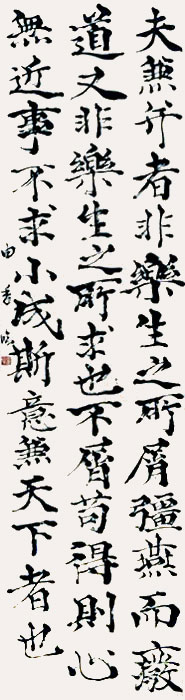 夫兼并者非樂生之所屑彊燕而廢
道又非樂生之所求也不屑苟得則心
無近事不求小成斯意兼天下者也